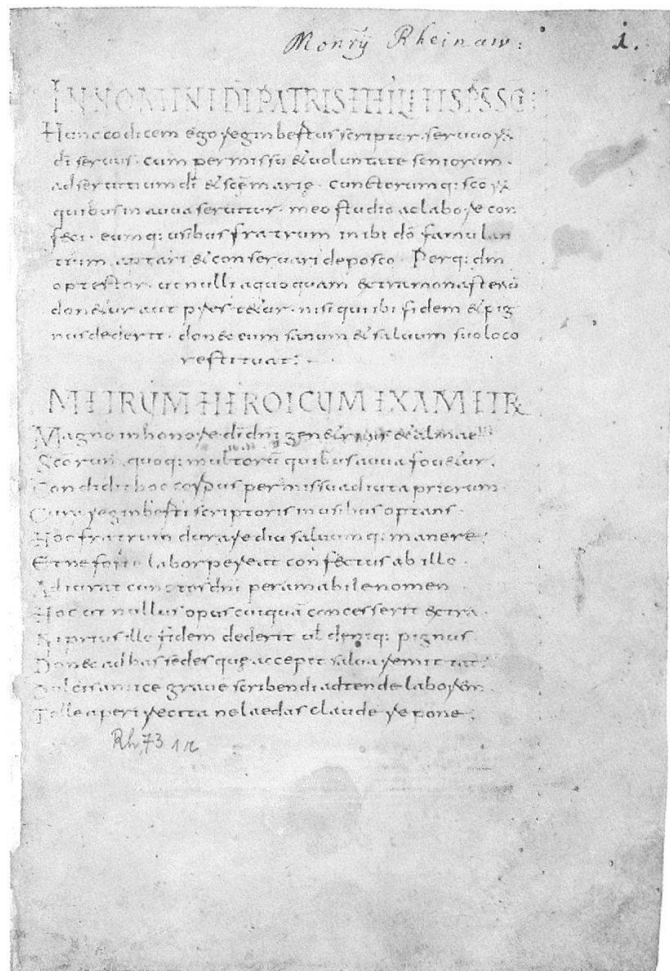 Monrÿ Rheinaw: 1.
IN NOMINE DI PATRIS ET FILII ET SPS SCI:
Hunc codicem ego reginbertus scriptor. seruorū
di seruus. cum permissu et uoluntate seniorum.
ad seruitium di et scē marię. cunctorumq: scorū
quibus in auua seruitur. meo studio ac labore con
feci. eumq: usibus fratrum inibi dō famulan
tium aptari et conseruari deposco. Perq: dm
optestor. ut nulli aquoquam extra monasteriū
donetur aut prestetur. nisi qui ibi fidem et pig
nus dederit. donec eum sanum et saluum suo loco
restituat:
METRUM HEROICUM EXAMETR
Magno in honore di dni genetricis et almae
Scorum quoq: multorū quibus auua fouetur.
Condidit hoc corpus permissu adiuta priorum
Cura reginberti scriptoris in usibus optans.
Hoc fratrum durare diu saluumq: manere:
Et ne forte labor pereat confectus ab illo.
Adiurat cunctos dni per amabile nomen
Hoc ut nullus opus cuiquā concesserit extra.
Ni prius ille fidem dederit ul deniq: pignus
Donec ad has sedes quę accepit salua remittat:
Dulcis amice graue scribendi adtende laborem
Tolle aperi recita ne laedas claude repone:
Rh, 73